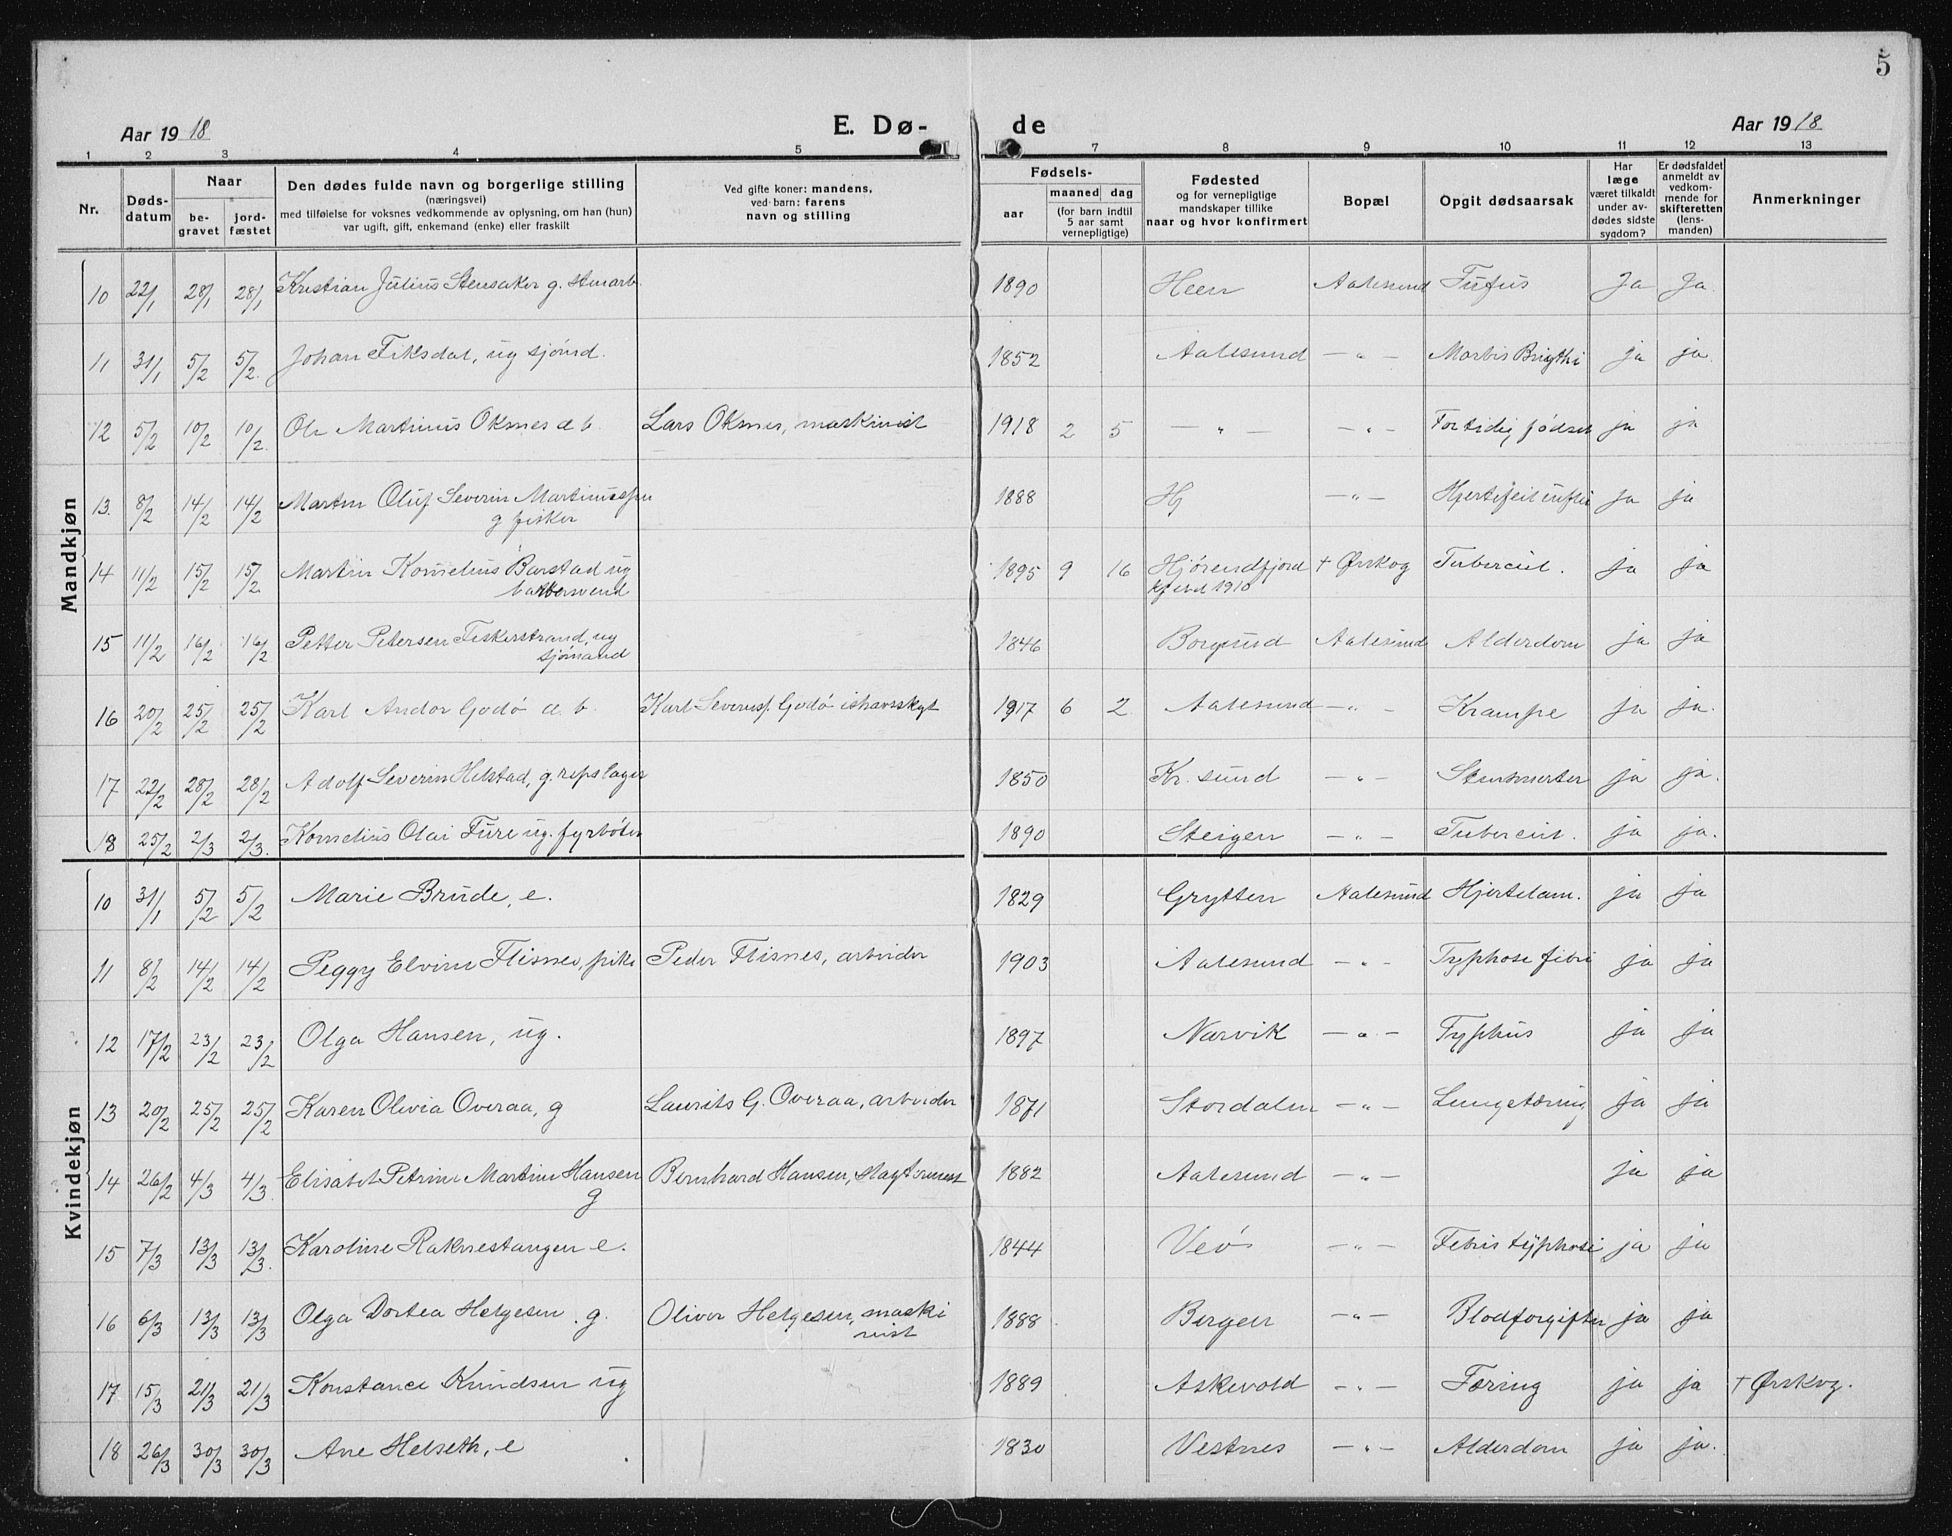 5
Aar 1918 E. Dø- de Aar 1918
1 2 3 4 5 7 8 9 10 11 12 13
Nr. Døds-datum Naar be-gravet jord-fæstet Den dødes fulde navn og borgerlige stilling (næringsvei) med tilføielse for voksnes vedkommende av oplysning, om han (hun) var ugift, gift, enkemand (enke) eller fraskilt Ved gifte koner: mandens, ved barn: farens navn og stilling Fødsels- aar maaned dag (for barn indtil 5 aar samt vernepligtige) Fødested og for vernepligtige mandskaper tillike naar og hvor konfirmert Bopæl Opgit dødsaarsak Har læge været tilkaldt under av-dødes sidste sygdom? Er dødsfaldet anmeldt av vedkom-mende for skifteretten (lens-manden) Anmerkninger
Mandkjøn
10 22/1 28/1 28/1 Kristian Julius Stensaker g. 1890 Aalesund Tyfus Ja Ja.
11 31/1 5/2 5/2. Johan Fiksdal, ug sjømd. 1852 Aalesund -"- Morbis Brigthi ja ja.
12 5/2 10/2 10/2. Ole Martinus Oksnes d. b. Lars Oksnes, maskinist 1918 2 5 -"- -"- Fortidig fødsel ja ja
13. 8/2 14/2 14/2 Martin Oluf Severin Martinussen 1888 Hj -"- ja ja
g fisker
14 11/2 15/2 15/2. Martin Kornelius Barstad ug 1895 9 16 Hjørendfjord + Ørskog Tubercul. ja ja
barbersvend 1910
15 11/2 16/2 16/2 Petter Petersen Fiskerstrand, ug 1846 Borgund Aalesund Alderdom ja ja
sjømand
16 20/2 25/2 25/2 Karl Andor Godø d. b. Karl Severinsf. Godø ishavsskyt 1917 6 2 Aalesund -"- Krampe ja ja.
17 22/2 28/2 28/2 Adolf Severin Helstad, g. repslager 1850 Kr. sund -"- ja ja.
18 25/2 2/3 2/3. Kornelius Olai Fure ug. fyrbøter 1890 Steigen -"- Tubercul. ja ja.
Kvindekjøn
10 31/1 5/2 5/2 Marie Brude, e. 1829 Grytten Aalesund Hjertelam. ja ja
11 8/2 14/2 14/2 Peggy Elvine Flisnes, pike Peder Flisnes, arbeider 1903 Aalesund -"- Typhose febri ja ja
12 17/2 23/2 23/2 Olga Hansen, ug. 1897 Narvik -"- Typhus ja ja
13 20/2 25/2 25/2 Karen Olivia Overaa, g Laurits G. Overaa, arbeider 1871 Stordalen -"- Lungetæring ja ja
14 26/2 4/3 4/3. Elisabet Petrine Martine Hansen Bernhard Hansen, 1882 Aalesund -"- ja ja
g
15 7/3 13/3 13/3 Karoline Raknestangen e. 1844 Veø -"- Febris typhosi ja ja
16 6/3 13/3 13/3 Olga Dortea Helgesen. g. Oliver Helgesen, maski 1888 Bergen -"- Blodforgiftn ja ja
nist
17 15/3 21/3 21/3 Konstance Knudsen ug 1889 Askevold -"- Tæring ja ja + Ørskog.
18 26/3 30/3 30/3 Ane Helseth, e 1830 Vestnes -"- Alderdom ja ja.